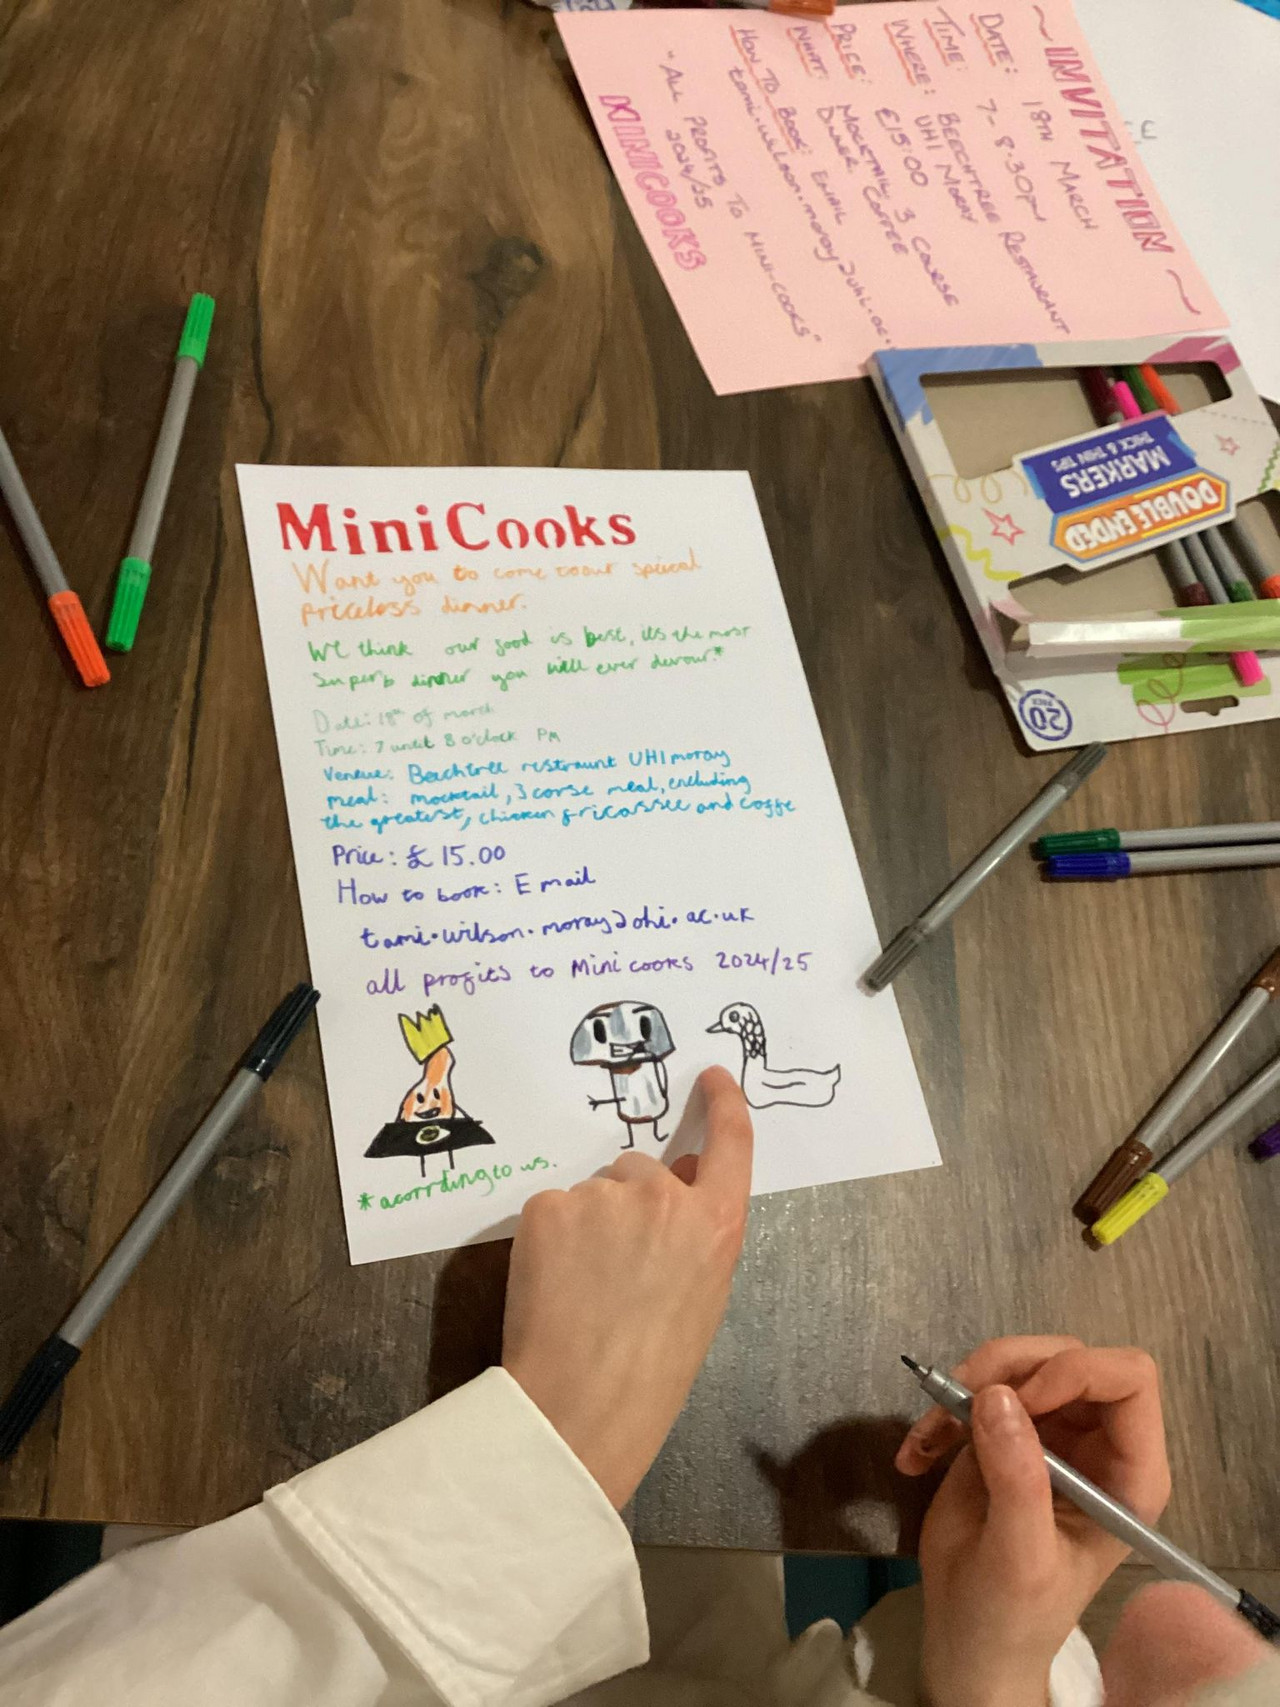 MiniCooks
Want you to come to our speical
priceless dinner.
We think our food is best, its the most
Superb dinner you will ever devour.*
Date: 18th of march
Time: 7 until 8 o'clock PM
Veneue: Beechtree restraunt UHI moray
meal: mocktail, 3 corse meal, encluding
the greatest, chicken fricassee and coffe
Price: £15.00
How to book: Email
tami.wilson.moray@uhi.ac.uk
all profits to Mini cooks 2024/25
*acorrding to us.
~ INVITATION ~
DATE: 18TH MARCH
TIME: 7-8.30PM
WHERE: BEECHTREE RESTAURANT
UHI MORAY
PRICE: £15.00
WHAT: MOCKTAIL, 3 COURSE
DINNER, COFFEE
HOW TO BOOK: EMAIL
tami.wilson.moray@uhi.ac.
"ALL PROFITS TO MINI-COOKS"
2024/25
MINICOOKS
DOUBLE ENDED
MARKERS
THICK & THIN TIPS
20
PACK